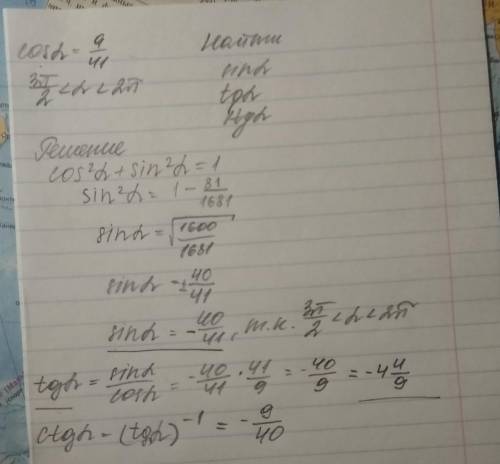 cosα = 9/41
3π/2 < α < 2π
Найти
sinα
tgα
ctgα
Решение
cos²α + sin²α = 1
sin²α = 1 - 81/1681
sinα = √(1600/1681)
sinα = ± 40/41
sinα = - 40/41, т.к. 3π/2 < α < 2π
tgα = sinα/cosα = - 40/41 · 41/9 = - 40/9 = -4 4/9
ctgα - (tgα)⁻¹ = - 9/40